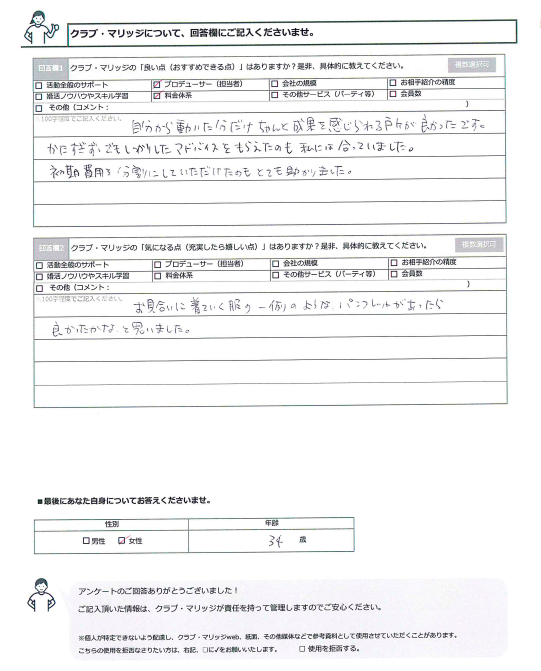 クラブ・マリッジについて、回答欄にご記入くださいませ。
回答欄1 クラブ・マリッジの「良い点（おすすめできる点）」はありますか？是非、具体的に教えてください。 複数選択可
□ 活動全般のサポート ☑ プロデューサー（担当者） □ 会社の規模 □ お相手紹介の精度
□ 婚活ノウハウやスキル学習 ☑ 料金体系 □ その他サービス（パーティ等） □ 会員数
□ その他（コメント： ）
※100字程度でご記入ください。
自分から動いた分だけちゃんと成果を感じられる所が良かったです。
かたすぎず、でもしっかりしたアドバイスをもらえたのも私には合っていました。
初期費用を分割にしていただけたのもとても助かりました。
回答欄2 クラブ・マリッジの「気になる点（充実したら嬉しい点）」はありますか？是非、具体的に教えてください。 複数選択可
□ 活動全般のサポート □ プロデューサー（担当者） □ 会社の規模 □ お相手紹介の精度
□ 婚活ノウハウやスキル学習 □ 料金体系 □ その他サービス（パーティ等） □ 会員数
□ その他（コメント： ）
※100字程度でご記入ください。
お見合いに着ていく服の一例のようなパンフレットがあったら
良かったかなと思いました。
■最後にあなた自身についてお答えくださいませ。
性別 年齢
□男性 ☑女性 34 歳
アンケートのご回答ありがとうございました！
ご記入頂いた情報は、クラブ・マリッジが責任を持って管理しますのでご安心ください。
※個人が特定できないよう配慮し、クラブ・マリッジweb、紙面、その他媒体などで参考資料として使用させていただくことがあります。
こちらの使用を拒否なさりたい方は、右記、□に✓をお願いいたします。 □ 使用を拒否する。